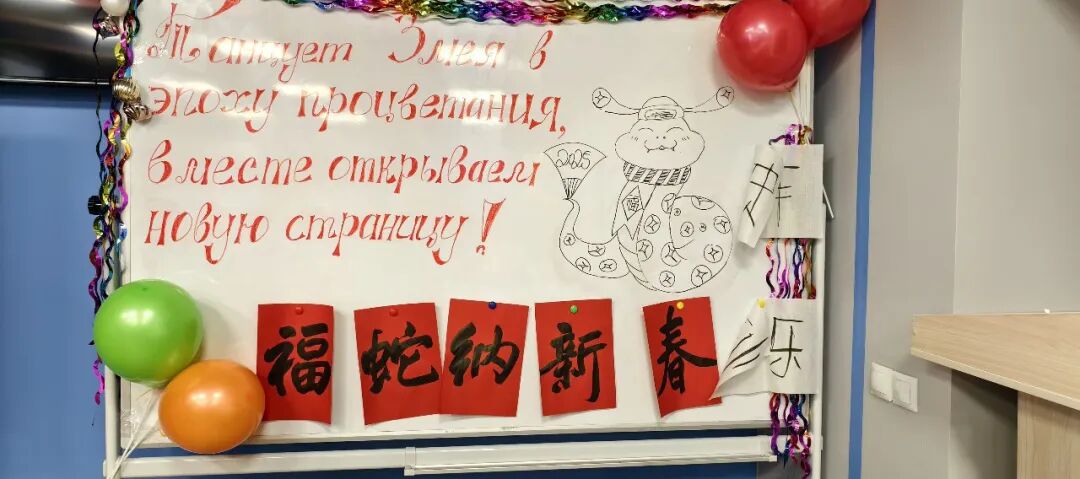 Танцует Змея в
эпоху процветания,
вместе открываем
новую страницу!
2025
福蛇纳新春
乐